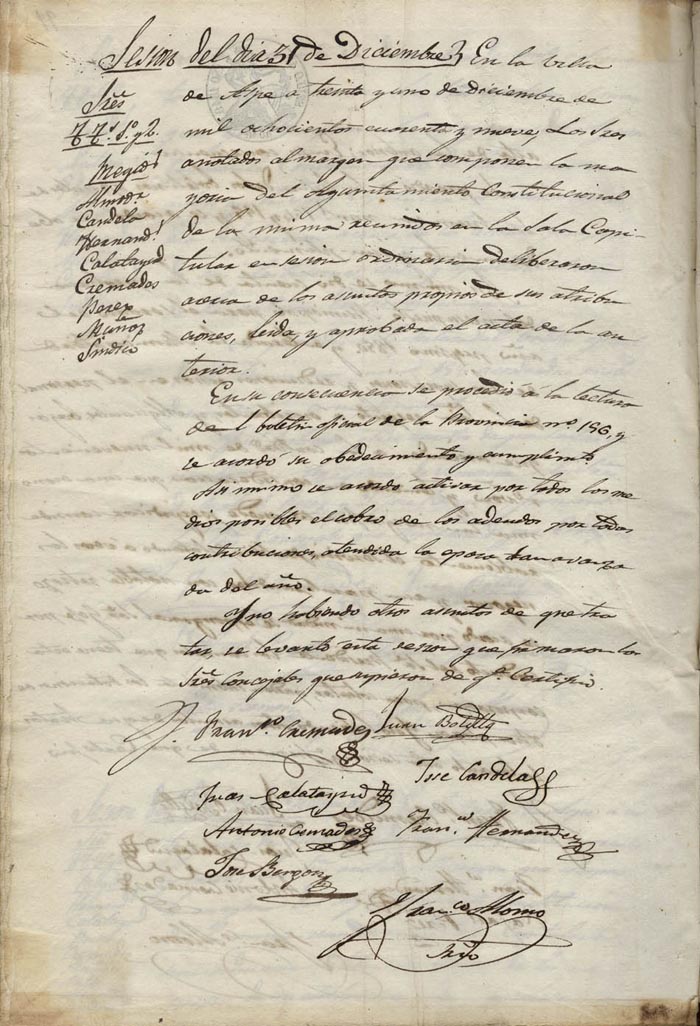 Sesion del dia 31 de Diciembre } En la villa
de Aspe a treinta y uno de Diciembre de
mil ochocientos cuarenta y nueve, Los Sres
anotados al margen que componen la ma
yoria del Ayuntamiento Constitucional
de la misma reunidos en la Sala Capi
tular en sesion ordinaria deliberaron
acerca de los asuntos propios de sus atribu
ciones, leida, y aprobada el acta de la an
terior.
Sres
TT.s 1º y 2.
Megias
Almodr
Candela
Hernand.
Calatayud
Cremades
Perez
Muñoz
Sindico
En su consecuencia se procedió á la lectura
del boletin oficial de la Provincia nº. 156, y
se acordó su obedecimiento y cumplimto.
Asi mismo se acordó activar por todos los me
dios posibles el cobro de los adeudos por todas
contribuciones, atendida la epoca tan avanza
da del año.
Y no habiendo otros asuntos de que tra
tar, se levantó esta sesion que firmaron los
Sres Concejales que supieron de qe. Certifico.
Fran.co Cremades Juan Botella
Juan Calatayud Jose Candela
Antonio Cremades Fran.co Hernandez
Jose
Fran.co Alonso
Srio